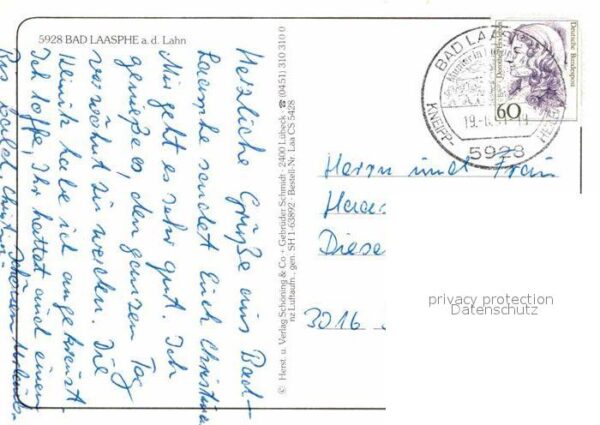 5928 BAD LAASPHE a. d. Lahn
Herzliche Grüße aus Bad-
Laasphe sendet Euch Christina
Mir geht es sehr gut. Ich
genieße es, den ganzen Tag
verwöhnt zu werden. Die
Klinik habe ich angekreuzt.
Ich hoffe, Ihr hattet auch einen
schönen Urlaub.
Bis bald, Christina
© Herst. u. Verlag Schöning & Co · Gebrüder Schmidt · 2400 Lübeck ☎ (04 51) 310 310 0
nz Luftaufn., gen. SH 1-63892 · Bestell-Nr. Laa CS 5428
BAD LAAS
KNEIPP- HEIL
19.-
5928
Deutsche Bundespost
60
Herrn und Frau
Haa
Diese
3016
privacy protection
Datenschutz